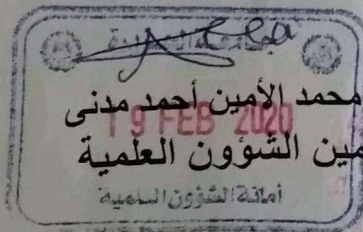 محمد الأمين أحمد مدنى
19 FEB 2020
مين الشؤون العلمية
أمانة الشؤون العلمية